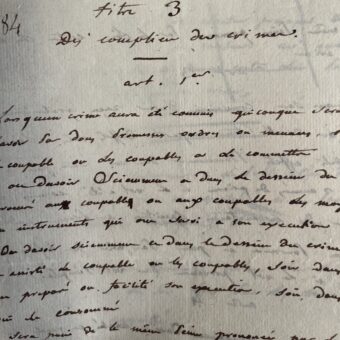 84
titre 3
Des complices des crimes.
art. 1er
Lorsqu'un crime aura été commis quiconque sera
avoir par dons promesses ordres ou menaces,
coupable ou les coupables a le commettre
ou d'avoir sciemment et dans le dessein du
coupable ou aux coupables des moy
instruments qui ont servi a son execution
Ou d'avoir sciemment et dans le dessein du crime
le coupable ou les coupables, soit dans
préparé ou facilité son execution, soit dans
de consommé
sera puni de la même peine prononcée par la